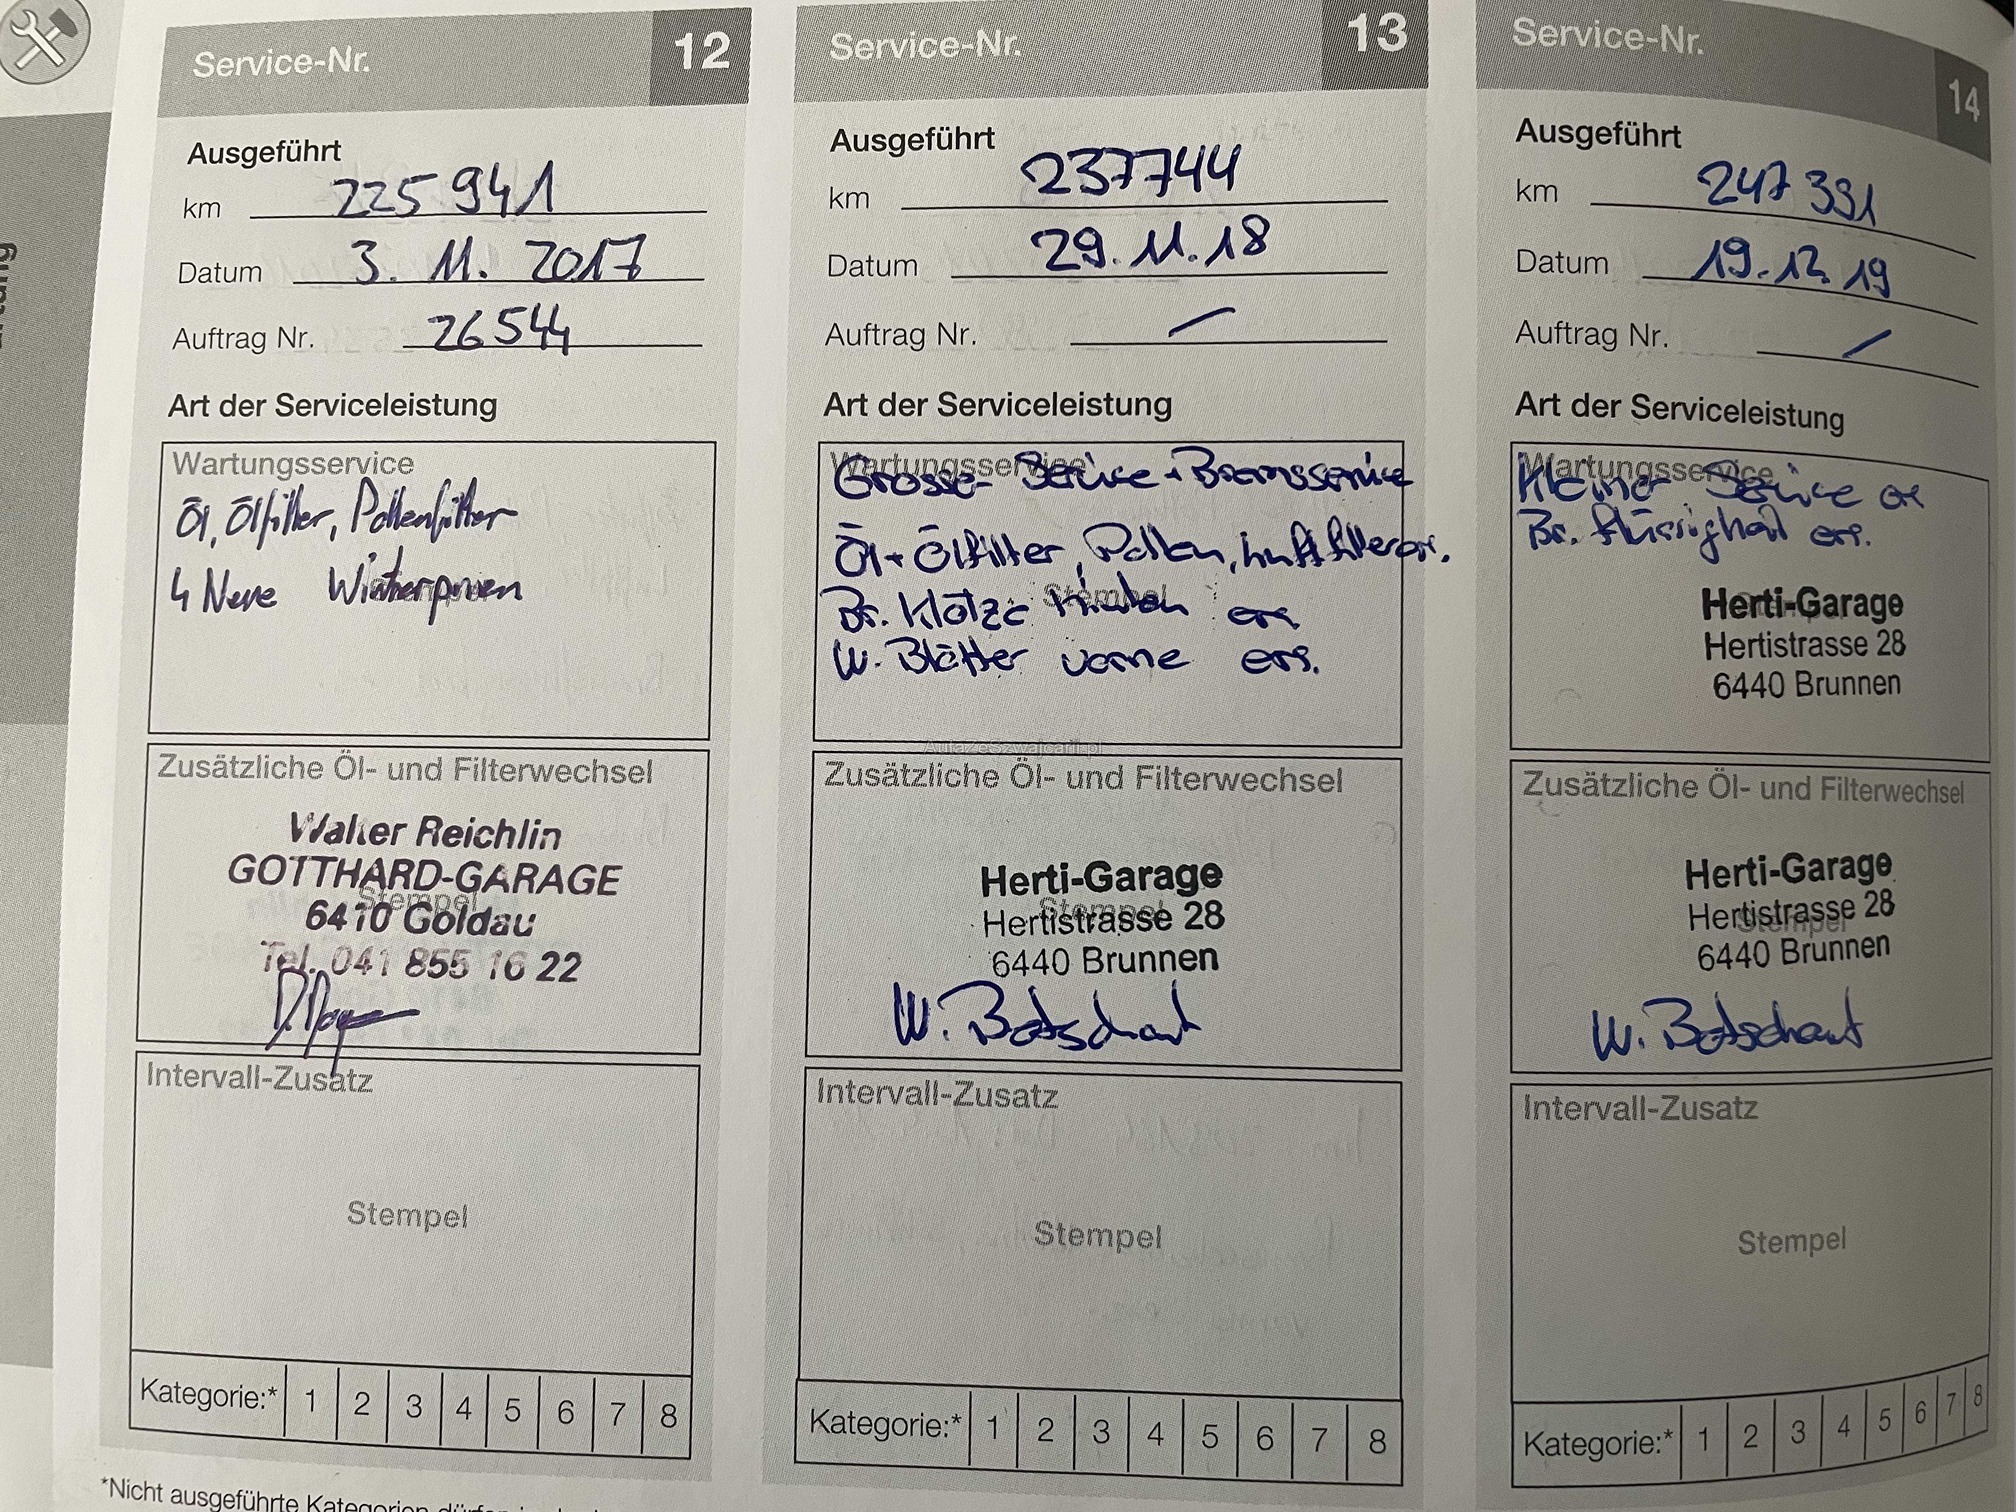 Service-Nr. 12
Ausgeführt
km 225 941
Datum 3. 11. 2017
Auftrag Nr. 26544
Art der Serviceleistung
Wartungsservice
Öl, Ölfilter, Pollenfilter
4 Neue Winterpneu
Zusätzliche Öl- und Filterwechsel
Walter Reichlin
GOTTHARD-GARAGE
Stempel
6410 Goldau
Tel. 041 855 16 22
Intervall-Zusatz
Stempel
Kategorie:* 1 2 3 4 5 6 7 8
*Nicht ausgeführte Kategorien
Service-Nr. 13
Ausgeführt
km 237744
Datum 29.11.18
Auftrag Nr. /
Art der Serviceleistung
Wartungsservice
Grosse- Service + Bremsservice
Öl + Ölfilter, Pollen, Luftfilter er.
Stempel
Br. Klötze hinten ers
W. Blätter vorne ers.
AutazeSzwajcarii.pl
Zusätzliche Öl- und Filterwechsel
Herti-Garage
Stempel
Hertistrasse 28
6440 Brunnen
W. Betschart
Intervall-Zusatz
Stempel
Kategorie:* 1 2 3 4 5 6 7 8
Service-Nr. 14
Ausgeführt
km 247 391
Datum 19.12.19
Auftrag Nr. /
Art der Serviceleistung
Wartungsservice
Kleiner Service
Br. flüssigkeit ers.
Herti-Garage
Hertistrasse 28
6440 Brunnen
Zusätzliche Öl- und Filterwechsel
Herti-Garage
Hertistrasse 28
Stempel
6440 Brunnen
W. Betschart
Intervall-Zusatz
Stempel
Kategorie:* 1 2 3 4 5 6 7 8